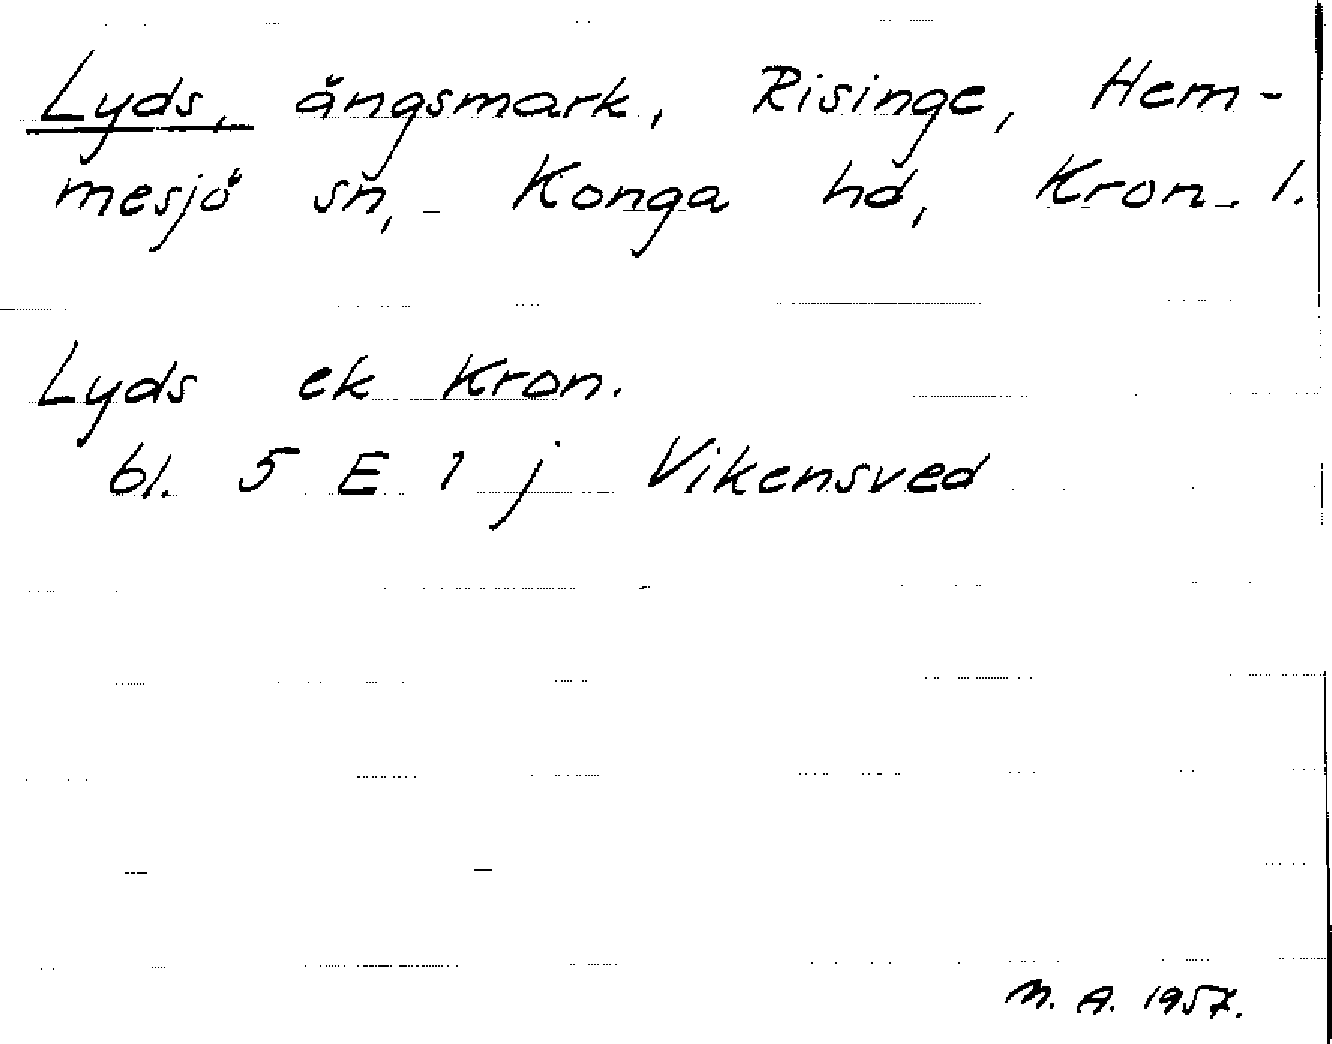 Lyds, ängsmark, Risinge, Hem-
mesjö sn, Konga hd, Kron. l.
Lyds ek Kron.
bl. 5 E 1 j Vikensved
M. A. 1957.